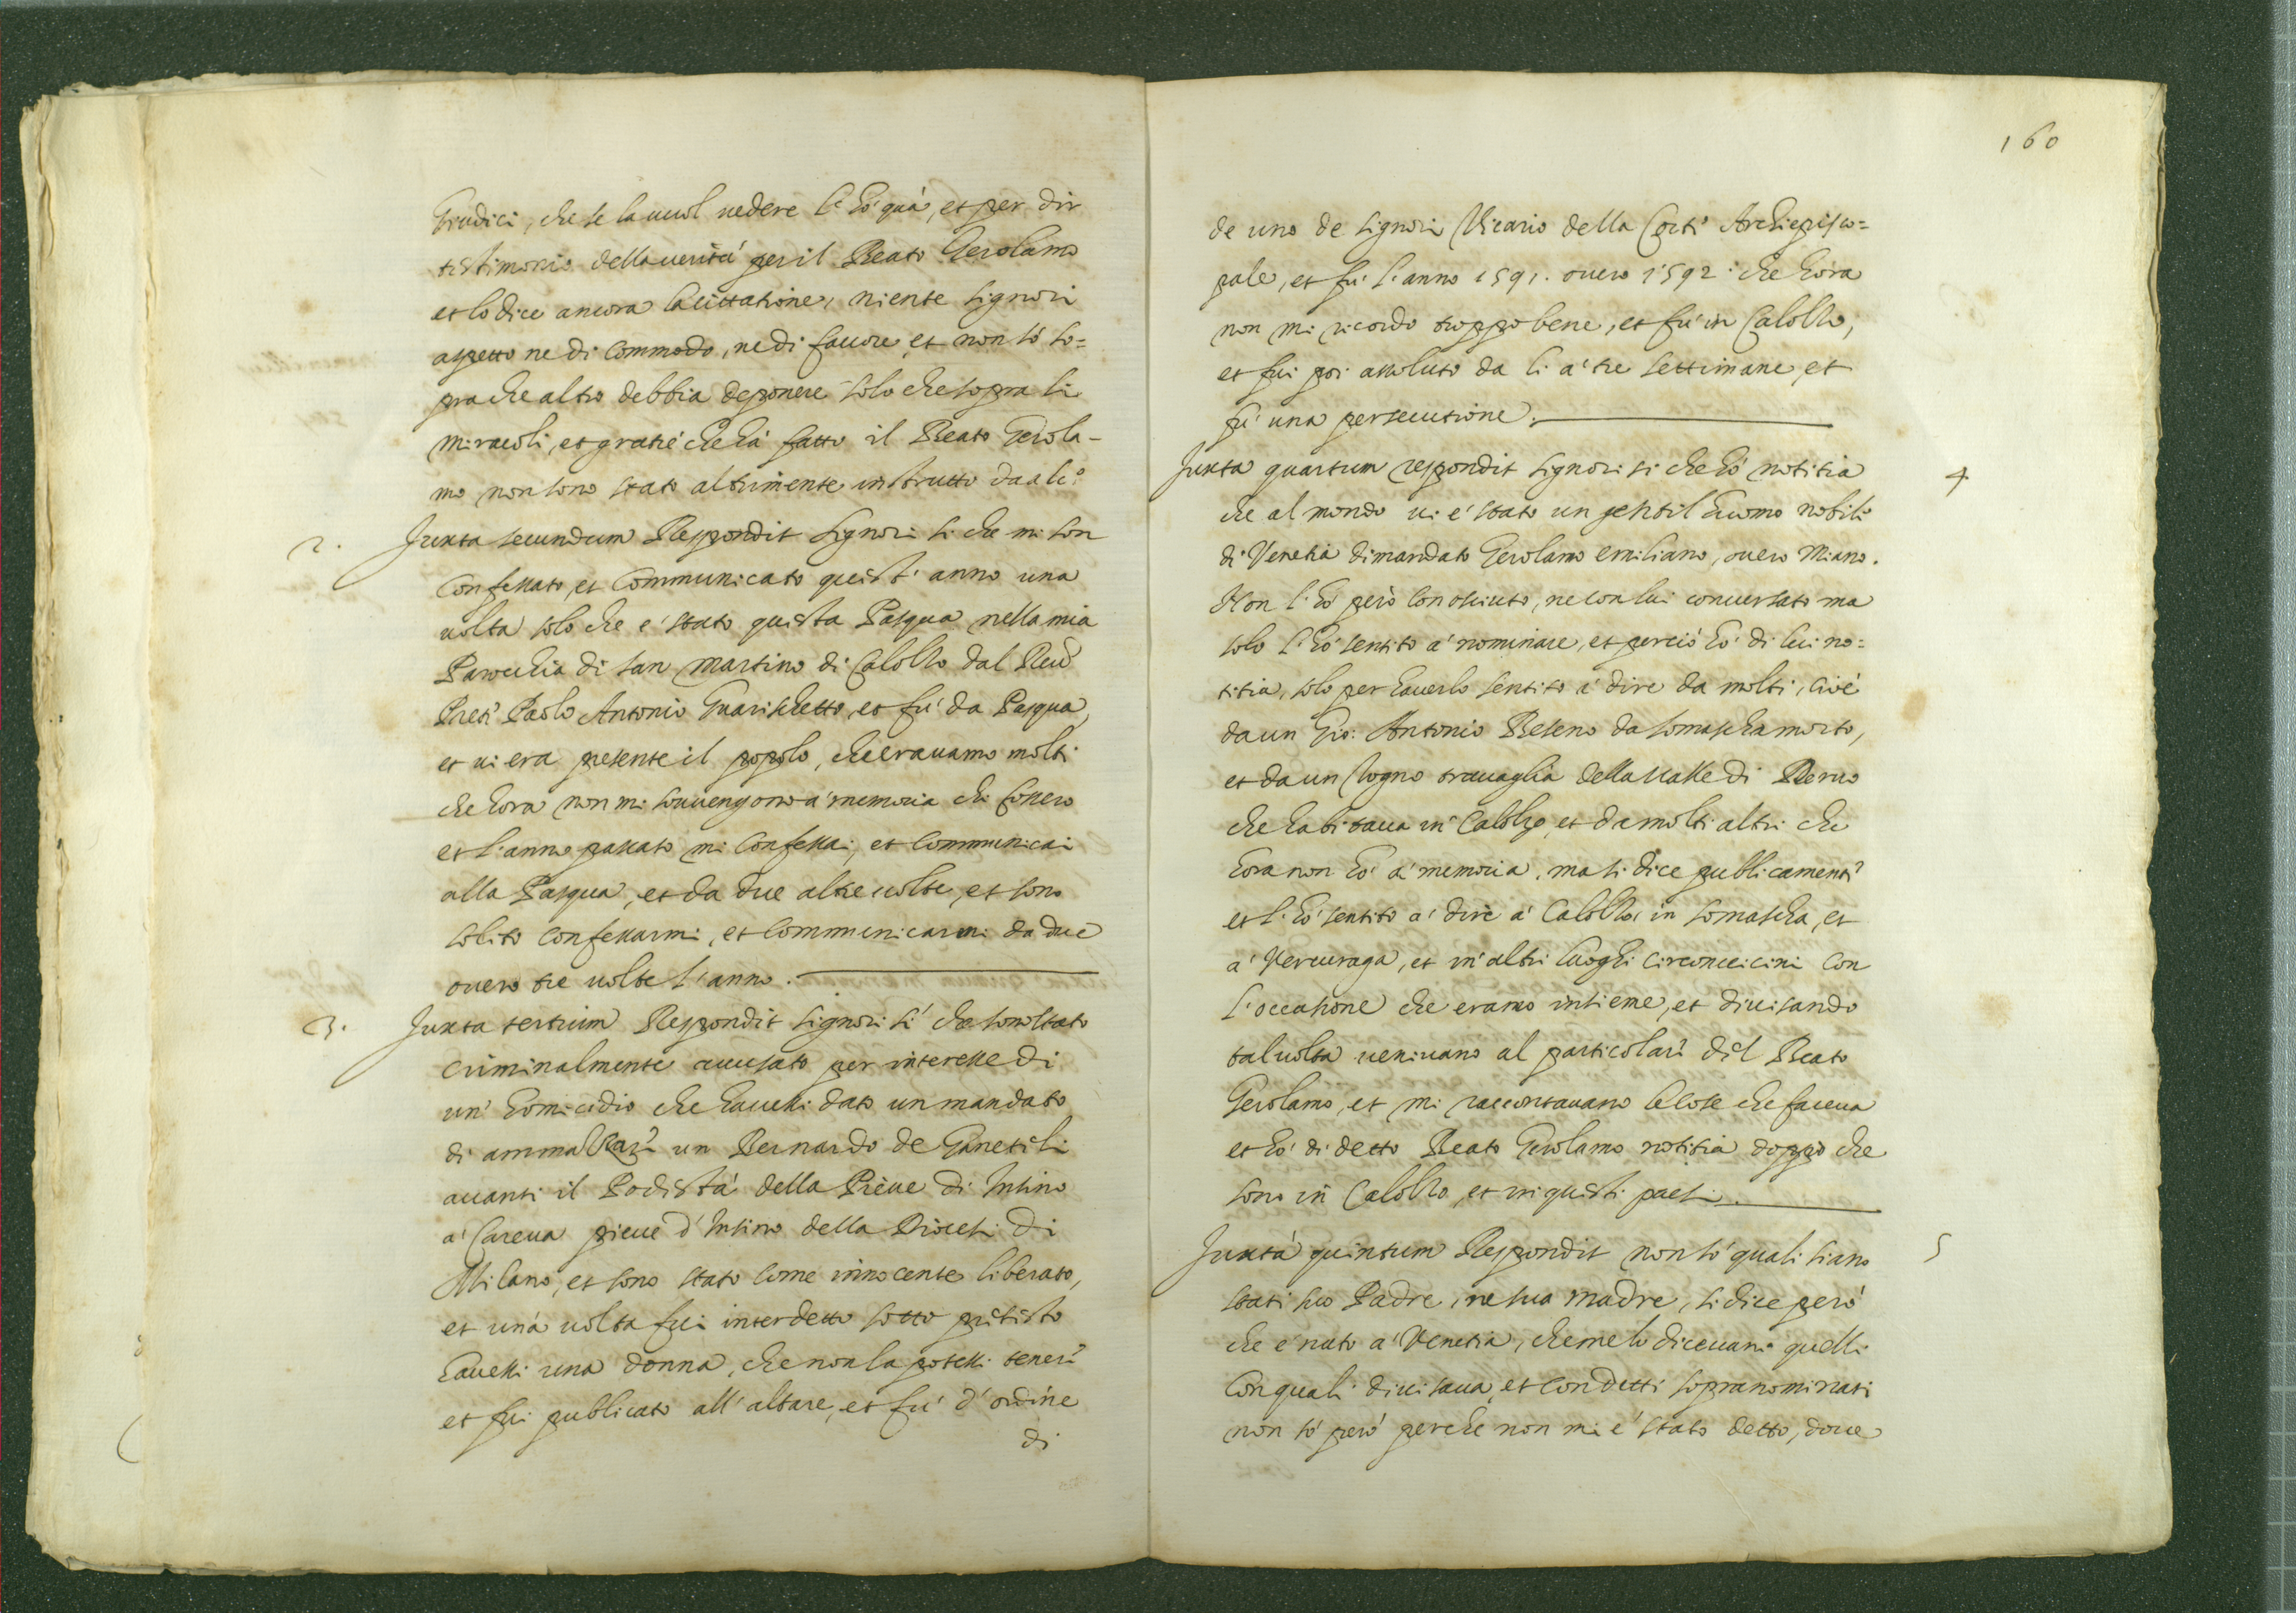 Giudici, che se la vuol vedere l'hò quà, et per dir
testimonio della verità per il Beato Gerolamo
et lo dice ancora la cittatione, niente signori
aspetto ne di commodo, ne di favore et non sò so=
pra che altro debbia deponere solo che sopra li
miracoli, et gratie che hà fatto il Beato Gerola-
mo non sono stato altrimente instrutto da alc.o
2. Juxta secundum Respondit signori si che mi son
confessato, et communicato quest'anno una
volta solo che è stato questa Pasqua nella mia
Parochia di san Martino di Calolzo dal Reu.do
Prete Paolo Antonio Guarischetto, et fù da Pasqua,
et vi era presente il popolo, che eravamo molti
che hora non mi souvengono à memoria chi fossero
et l'anno passato mi confessai, et communicai
alla Pasqua, et da due altre volte, et sono
solito confessarmi, et communicarmi da due
overo tre volte l'anno.
3. Juxta tertium Respondit signori sì che sono stato
criminalmente accusato per interesse di
un' homicidio che havessi dato un mandato
di ammazzare un Bernardo de Ganetili
avanti il Podestà della Pieve di Insino
à Careva pieve d'Insino della Diocesi di
Milano, et sono stato come innocente liberato,
et una volta fui interdetto sotto pretesto
havessi una donna, che non la potessi tenere
et fui publicato all'altare, et fù d'ordine
di
160
de uno de signori Vicario della Corte Archiepisco=
pale, et fù l'anno 1591. overo 1592. che hora
non mi ricordo troppo bene, et fù in Calolzo,
et fui poi assoluto da li à tre settimane, et
fù una persecutione.
Juxta quartum respondit signori si che hò notitia 4
che al mondo vi è stato un gentil huomo nobile
di Venetia dimandato Gerolamo emiliano, overo Miano.
Non l'hò però conosciuto, ne con lui conversato ma
solo l'hò sentito à nominare, et perciò hò di lui no=
titia, solo per haverlo sentito à dire da molti, cioè
da un Gio: Antonio Beseno da somascha morto,
et da un Togno travaglia della valle di Reruo
che habitava in Calolzo, et da molti altri che
hora non hò à memoria, ma si dice publicamente
et l'hò sentito à dire à Calolzo, in somascha, et
à Vercuraga, et in altri luoghi circonvicini con
l'occasione che eramo insieme, et divisando
talvolta venivano al particolare del Beato
Gerolamo, et mi raccontavano le cose che faceva
et hò di detto Beato Gerolamo notitia doppò che
sono in Calolzo, et in questi paesi.
Juxta quintum Respondit non sò quali siano 5
stati suo Padre, ne sua madre, si dice però
che è nato à Venetia, che me lo dicevano quelli
con quali divisava, et con detti sopranominati
non sò però perche non mi è stato detto, dove